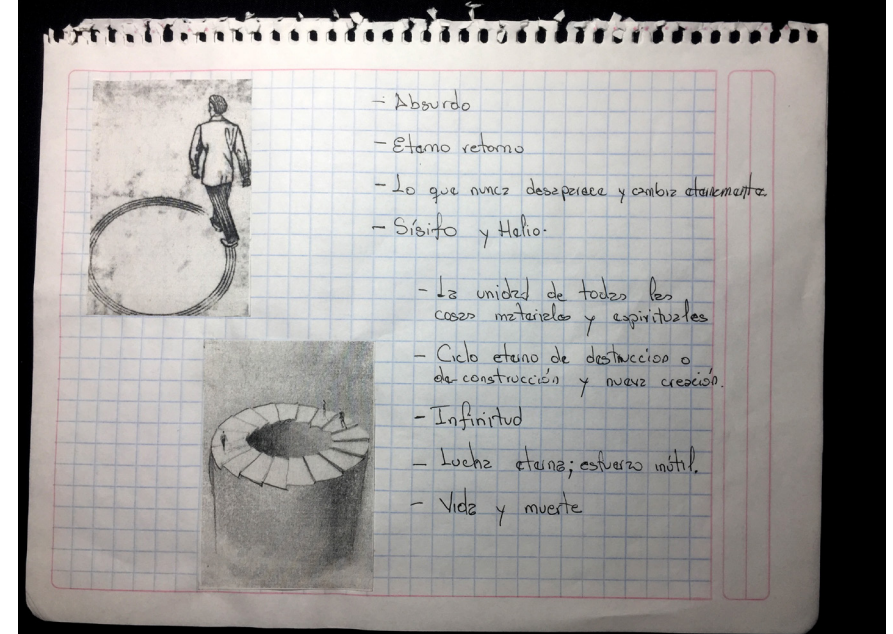 - Absurdo
- Eterno retorno
- Lo que nunca desaparece y cambia eternamente
- Sísifo y Helio.
- La unidad de todas las
cosas materiales y espirituales
- Ciclo eterno de destruccion o
de construcción y nueva creación.
- Infinitud
- Lucha eterna; esfuerzo inútil.
- Vida y muerte